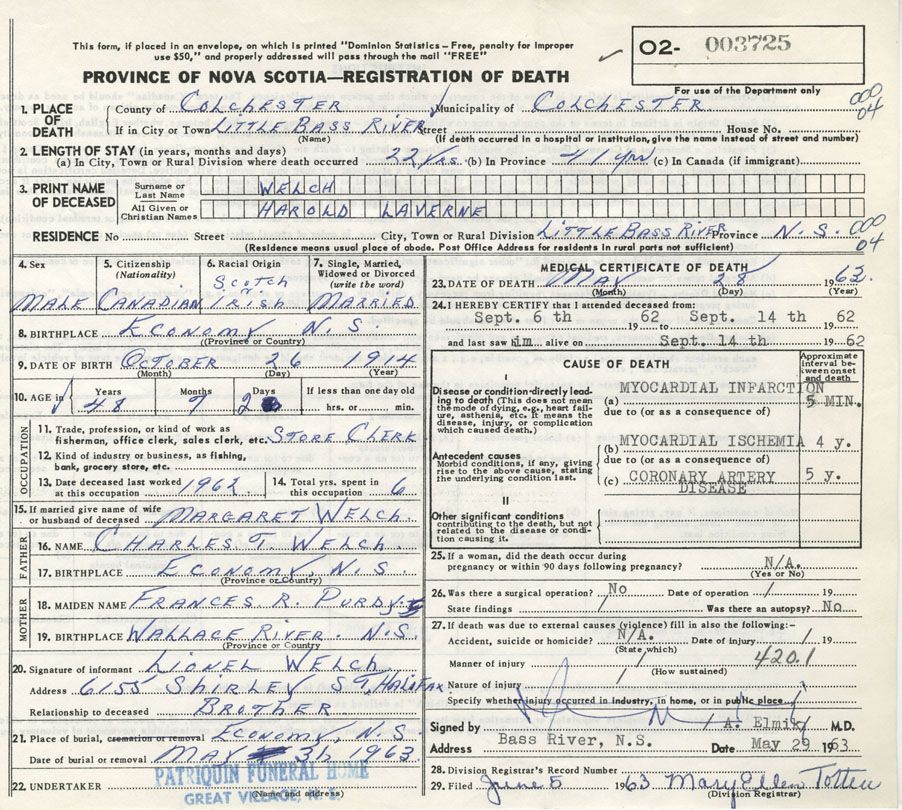 This form, if placed in an envelope, on which is printed "Dominion Statistics – Free, penalty for improper
use $50," and properly addressed will pass through the mail "FREE"
O2- 003725
For use of the Department only
PROVINCE OF NOVA SCOTIA—REGISTRATION OF DEATH
1. PLACE OF DEATH County of COLCHESTER Municipality of COLCHESTER 000 04
If in City or Town LITTLE BASS RIVER Street House No.
(Name) (If death occurred in a hospital or institution, give the name instead of street and number)
2. LENGTH OF STAY (in years, months and days)
(a) In City, Town or Rural Division where death occurred 22 yrs. (b) In Province 41 yrs (c) In Canada (if immigrant)
3. PRINT NAME OF DECEASED Surname or Last Name WELCH
All Given or Christian Names HAROLD LAVERNE
RESIDENCE No Street City, Town or Rural Division LITTLE BASS RIVER Province N.S. 000 04
(Residence means usual place of abode. Post Office Address for residents in rural parts not sufficient)
4. Sex MALE
5. Citizenship (Nationality) CANADIAN
6. Racial Origin SCOTCH IRISH
7. Single, Married, Widowed or Divorced (write the word) MARRIED
8. BIRTHPLACE ECONOMY N.S.
(Province or Country)
9. DATE OF BIRTH OCTOBER 26 1914
(Month) (Day) (Year)
10. AGE in Years Months Days If less than one day old
48 7 2 hrs. or min.
OCCUPATION
11. Trade, profession, or kind of work as
fisherman, office clerk, sales clerk, etc. STORE CLERK
12. Kind of industry or business, as fishing,
bank, grocery store, etc.
13. Date deceased last worked at this occupation 1962
14. Total yrs. spent in this occupation 6
15. If married give name of wife
or husband of deceased MARGARET WELCH
FATHER
16. NAME CHARLES T. WELCH
17. BIRTHPLACE ECONOMY, N.S.
(Province or Country)
MOTHER
18. MAIDEN NAME FRANCES R. PURDY
19. BIRTHPLACE WALLACE RIVER. N.S.
(Province or Country)
20. Signature of informant LIONEL WELCH
Address 6155 SHIRLEY ST, HALIFAX
Relationship to deceased BROTHER
21. Place of burial, cremation or removal ECONOMY, N.S
Date of burial or removal MAY 31, 1963
22. UNDERTAKER PATRIQUIN FUNERAL HOME
(Name and address)
GREAT VILLAGE, N. S.
MEDICAL CERTIFICATE OF DEATH
23. DATE OF DEATH MAY 28 1963.
(Month) (Day) (Year)
24. I HEREBY CERTIFY that I attended deceased from:
Sept. 6 th 19 62 to Sept. 14 th 19 62
and last saw him alive on Sept. 14 th 19 62
CAUSE OF DEATH
Approximate interval between onset and death
I
Disease or condition directly leading to death (This does not mean the mode of dying, e.g., heart failure, asthenia, etc. It means the disease, injury, or complication which caused death.)
(a) MYOCARDIAL INFARCTION 5 MIN.
due to (or as a consequence of)
Antecedent causes
Morbid conditions, if any, giving rise to the above cause, stating the underlying condition last.
(b) MYOCARDIAL ISCHEMIA 4 y.
due to (or as a consequence of)
(c) CORONARY ARTERY DISEASE 5 y.
II
Other significant conditions
contributing to the death, but not related to the disease or condition causing it.
25. If a woman, did the death occur during
pregnancy or within 90 days following pregnancy? N/A.
(Yes or No)
26. Was there a surgical operation? No Date of operation / 19
State findings / Was there an autopsy? No
27. If death was due to external causes (violence) fill in also the following:–
Accident, suicide or homicide? N/A. Date of injury / 19
(State which)
Manner of injury / 420.1
(How sustained)
Nature of injury /
Specify whether injury occurred in industry, in home, or in public place /
Signed by / A. Elmiky M.D.
Address Bass River, N.S. Date May 29 1963
28. Division Registrar's Record Number
29. Filed June 5 1963 Mary Ellen Totten
(Division Registrar)